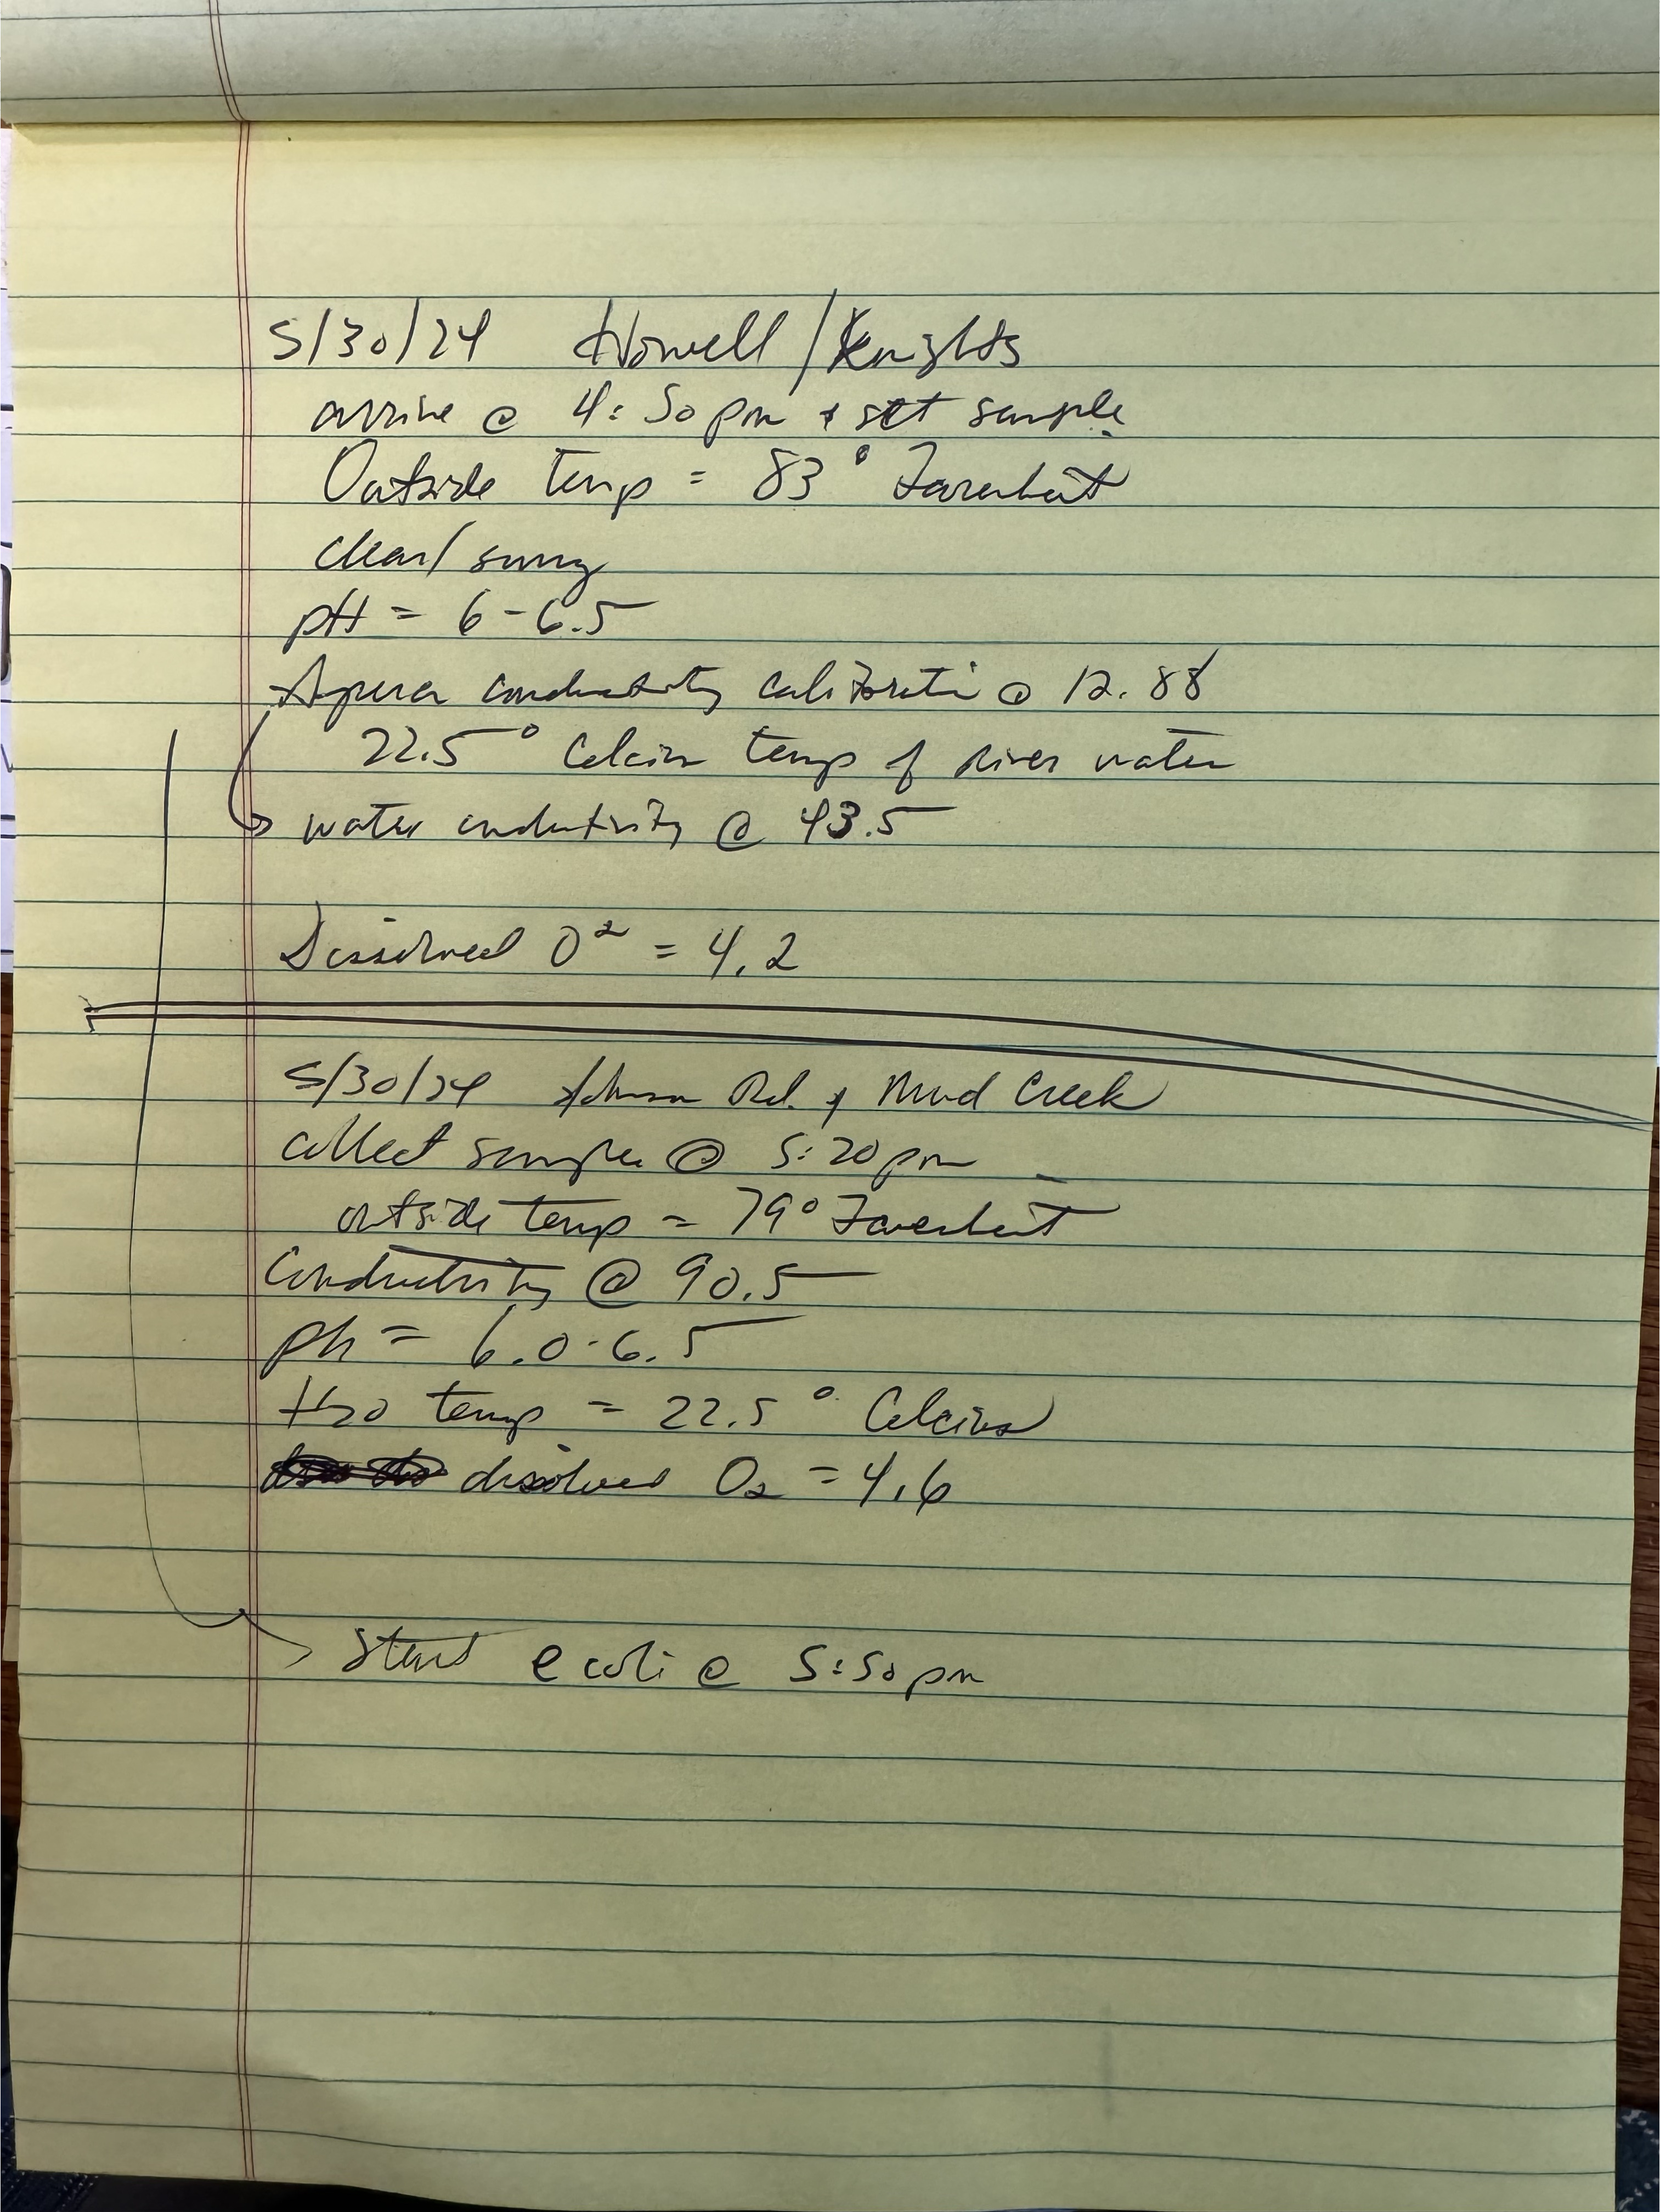 5/30/24 Howell/Knights
arrive @ 4:50pm + set sample
Outside temp = 83° Farenheit
clear/sunny
pH = 6-6.5
Apera conductivity calibrati @ 12.88
22.5° Celcius temp of river water
water conductivity @ 43.5
Dissolved O² = 4.2
5/30/24 Johnson Rd. & Mud Creek
collect sample @ 5:20pm
outside temp = 79° Farenheit
Conductivity @ 90.5
ph = 6.0-6.5
H2O temp = 22.5° Celcius
dissolved O2 = 4.6
Start e coli @ 5:50pm